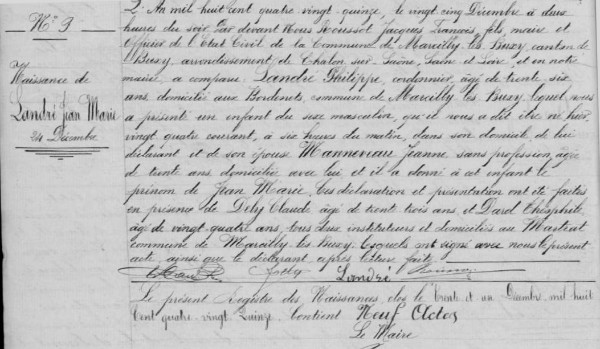 N° 9
Naissance de
Landré Jean Marie
24 Décembre
L'An mil huit cent quatre vingt quinze, le vingt cinq Décembre à deux
heures du soir Par devant Nous Roussot Jacques François, fils, maire et
Officier de l'Etat Civil de la Commune de Marcilly-les-Buxy, canton de
Buxy, arrondissement de Chalon sur Saône, Saône et Loire, et en notre
mairie, a comparu Landré Philippe, cordonnier, âgé de trente six
ans domicilié aux Bordenots, commune de Marcilly-les-Buxy, lequel nous
a présenté un enfant du sexe masculin, qu'il nous a dit être né hier,
vingt quatre courant, à six heures du matin, dans son domicile de lui
déclarant et de son épouse Manneveau Jeanne, sans profession, âgée
de trente ans domiciliée avec lui et il a donné à cet enfant le
prénom de Jean Marie. Ces déclaration et présentation ont été faites
en présence de Claude âgé de trente trois ans et Théophile
âgé de vingt quatre ans, tous deux instituteurs et domiciliés au
commune de Marcilly-les-Buxy. Lesquels ont signé avec nous le présent
acte, ainsi que le déclarant, après lecture faite.
Landré
Le présent Registre des Naissances, clos le trente et un Décembre mil huit
Cent quatre-vingt Quinze, contient Neuf Actes
Le Maire